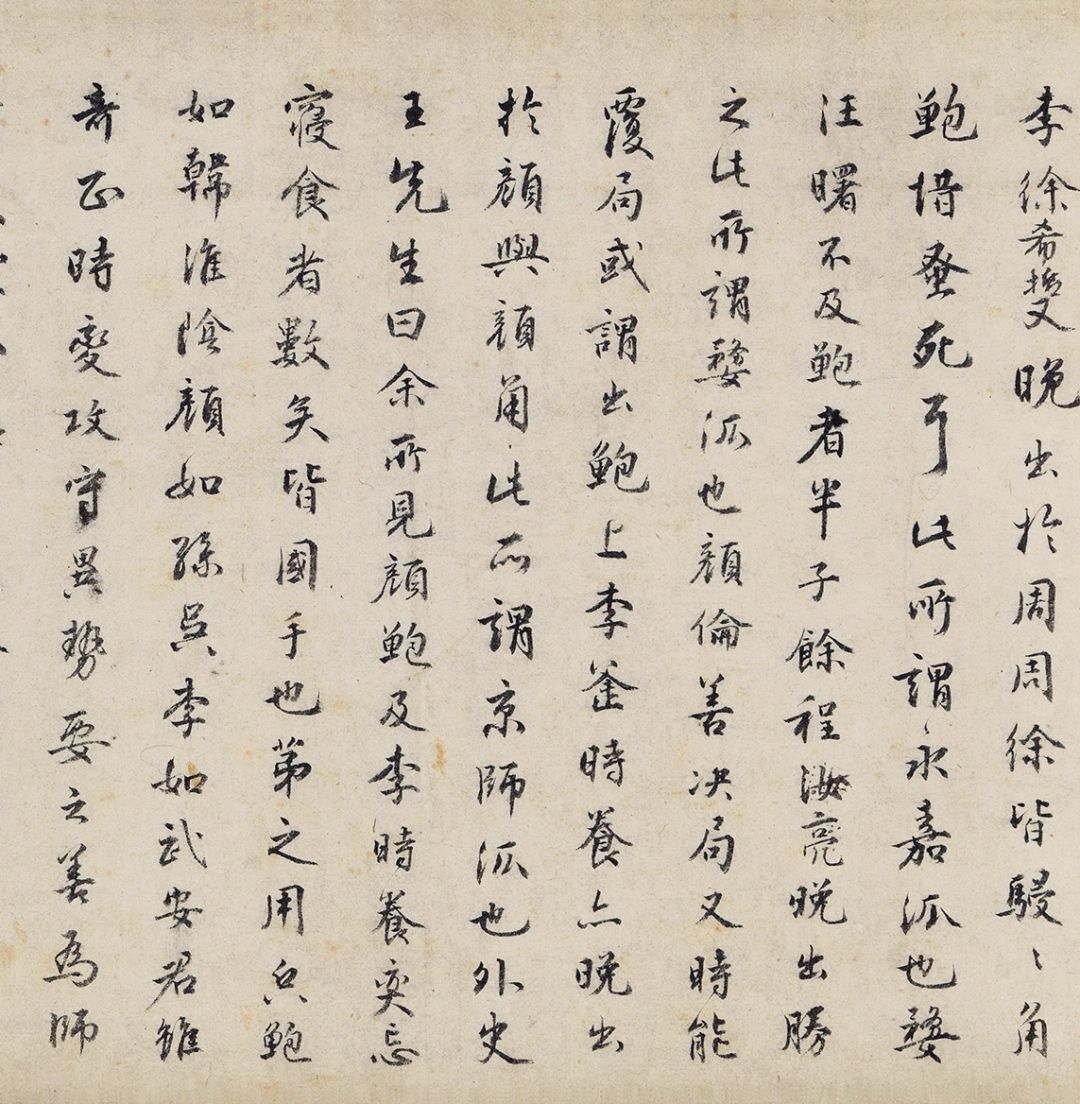 李徐希晚出於周周徐皆駸〻角
鮑惜蚤死耳此所謂永嘉派也婺
汪曙不及鮑者半子餘程汝亮晚出勝
之此所謂婺派也顏倫善决局又時能
覆局或謂出鮑上李釜時養亦晚出
於顏與顏角此所謂京師派也外史
王先生曰余所見顏鮑及李時養奕忘
寢食者數矣皆國手也第之用兵鮑
如韓淮陰顏如孫吳李如武安君雖
奇正時變攻守異勢要之善為師